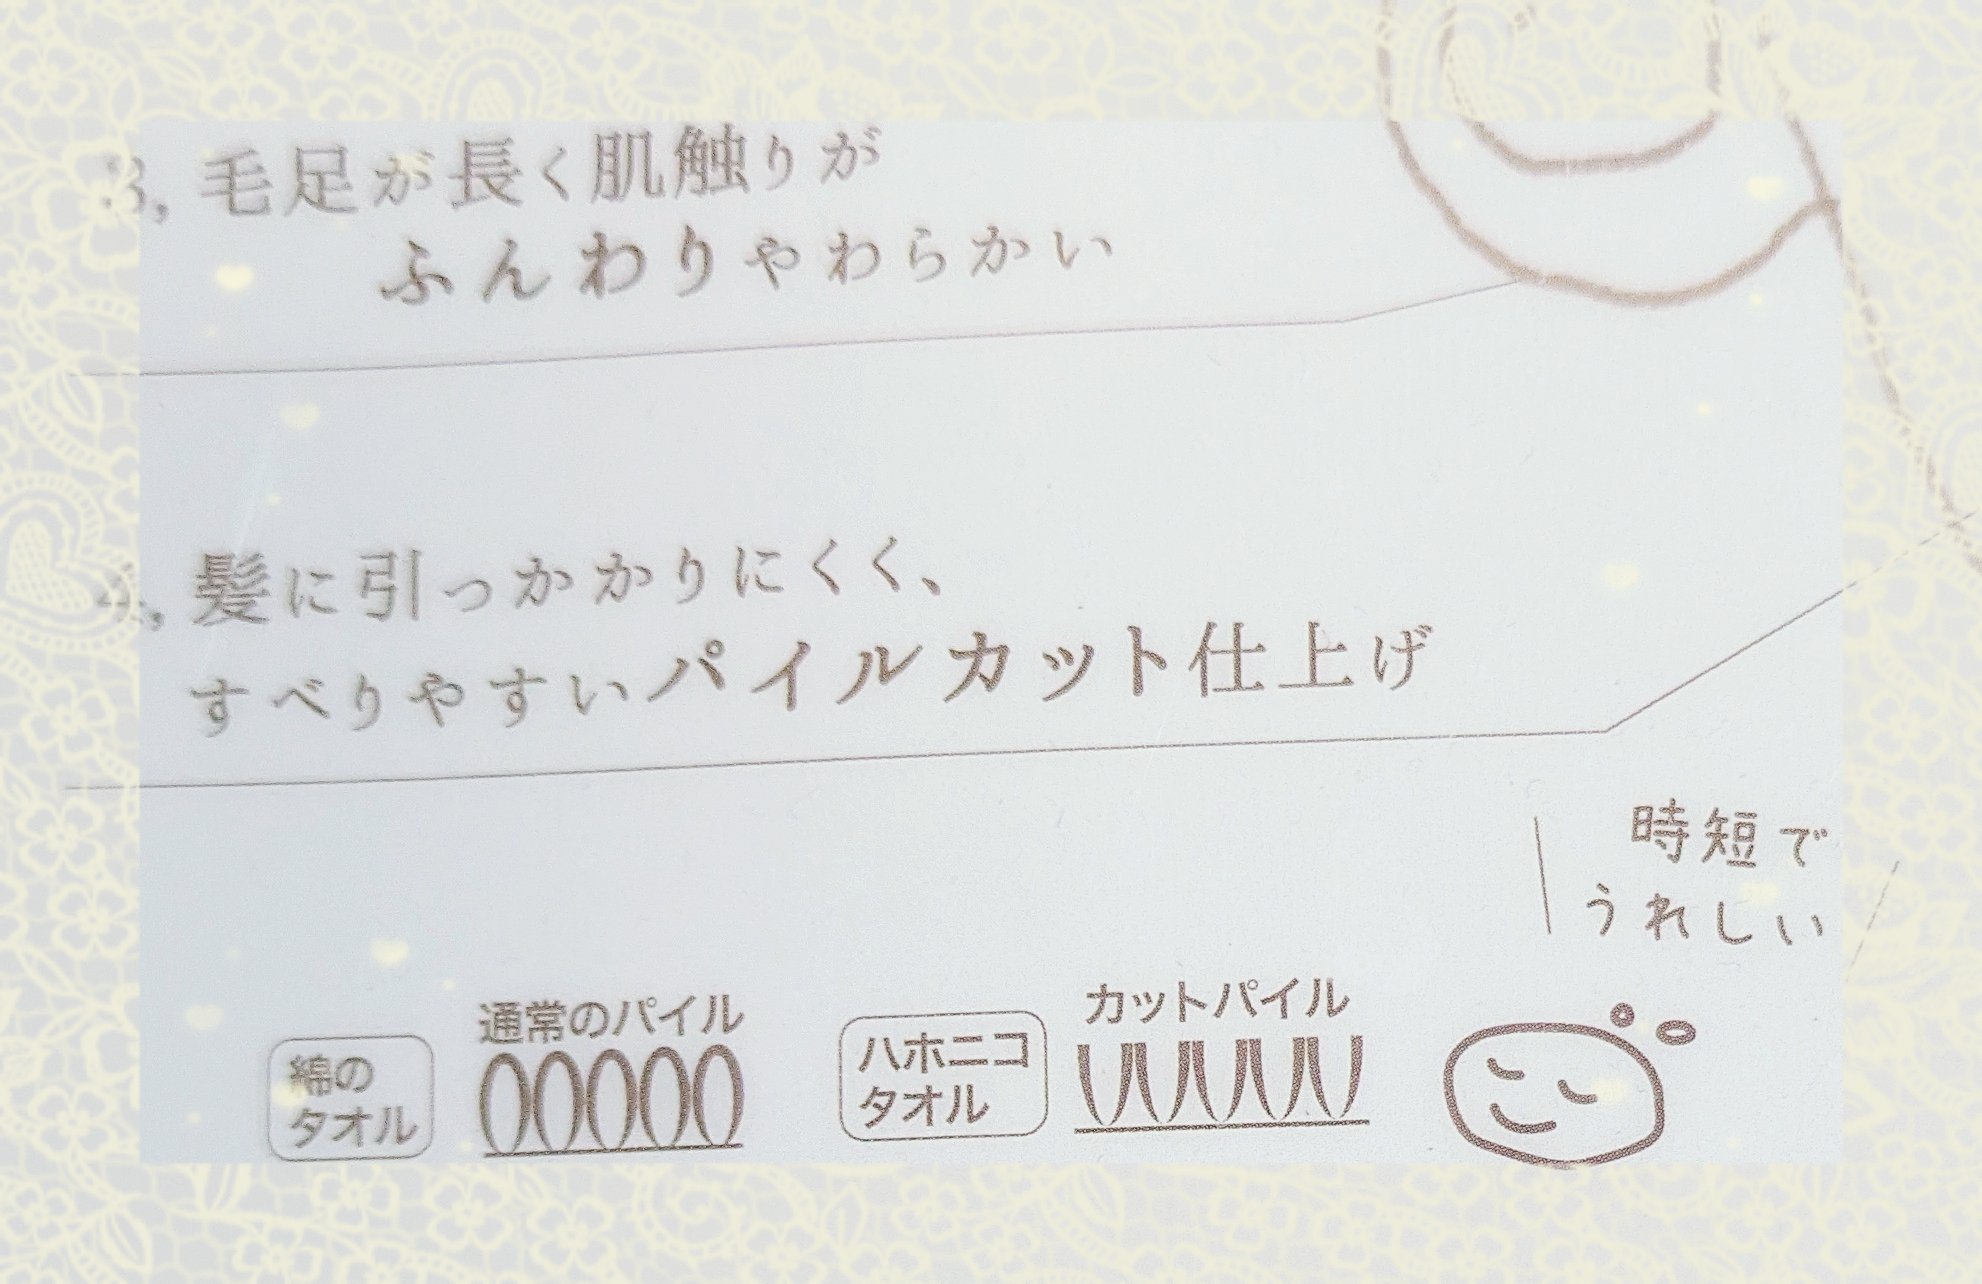 3, 毛足が長く肌触りが
ふんわりやわらかい
4, 髪に引っかかりにくく、
すべりやすいパイルカット仕上げ
時短で
うれしい
綿の
タオル
通常のパイル
ハホニコ
タオル
カットパイル